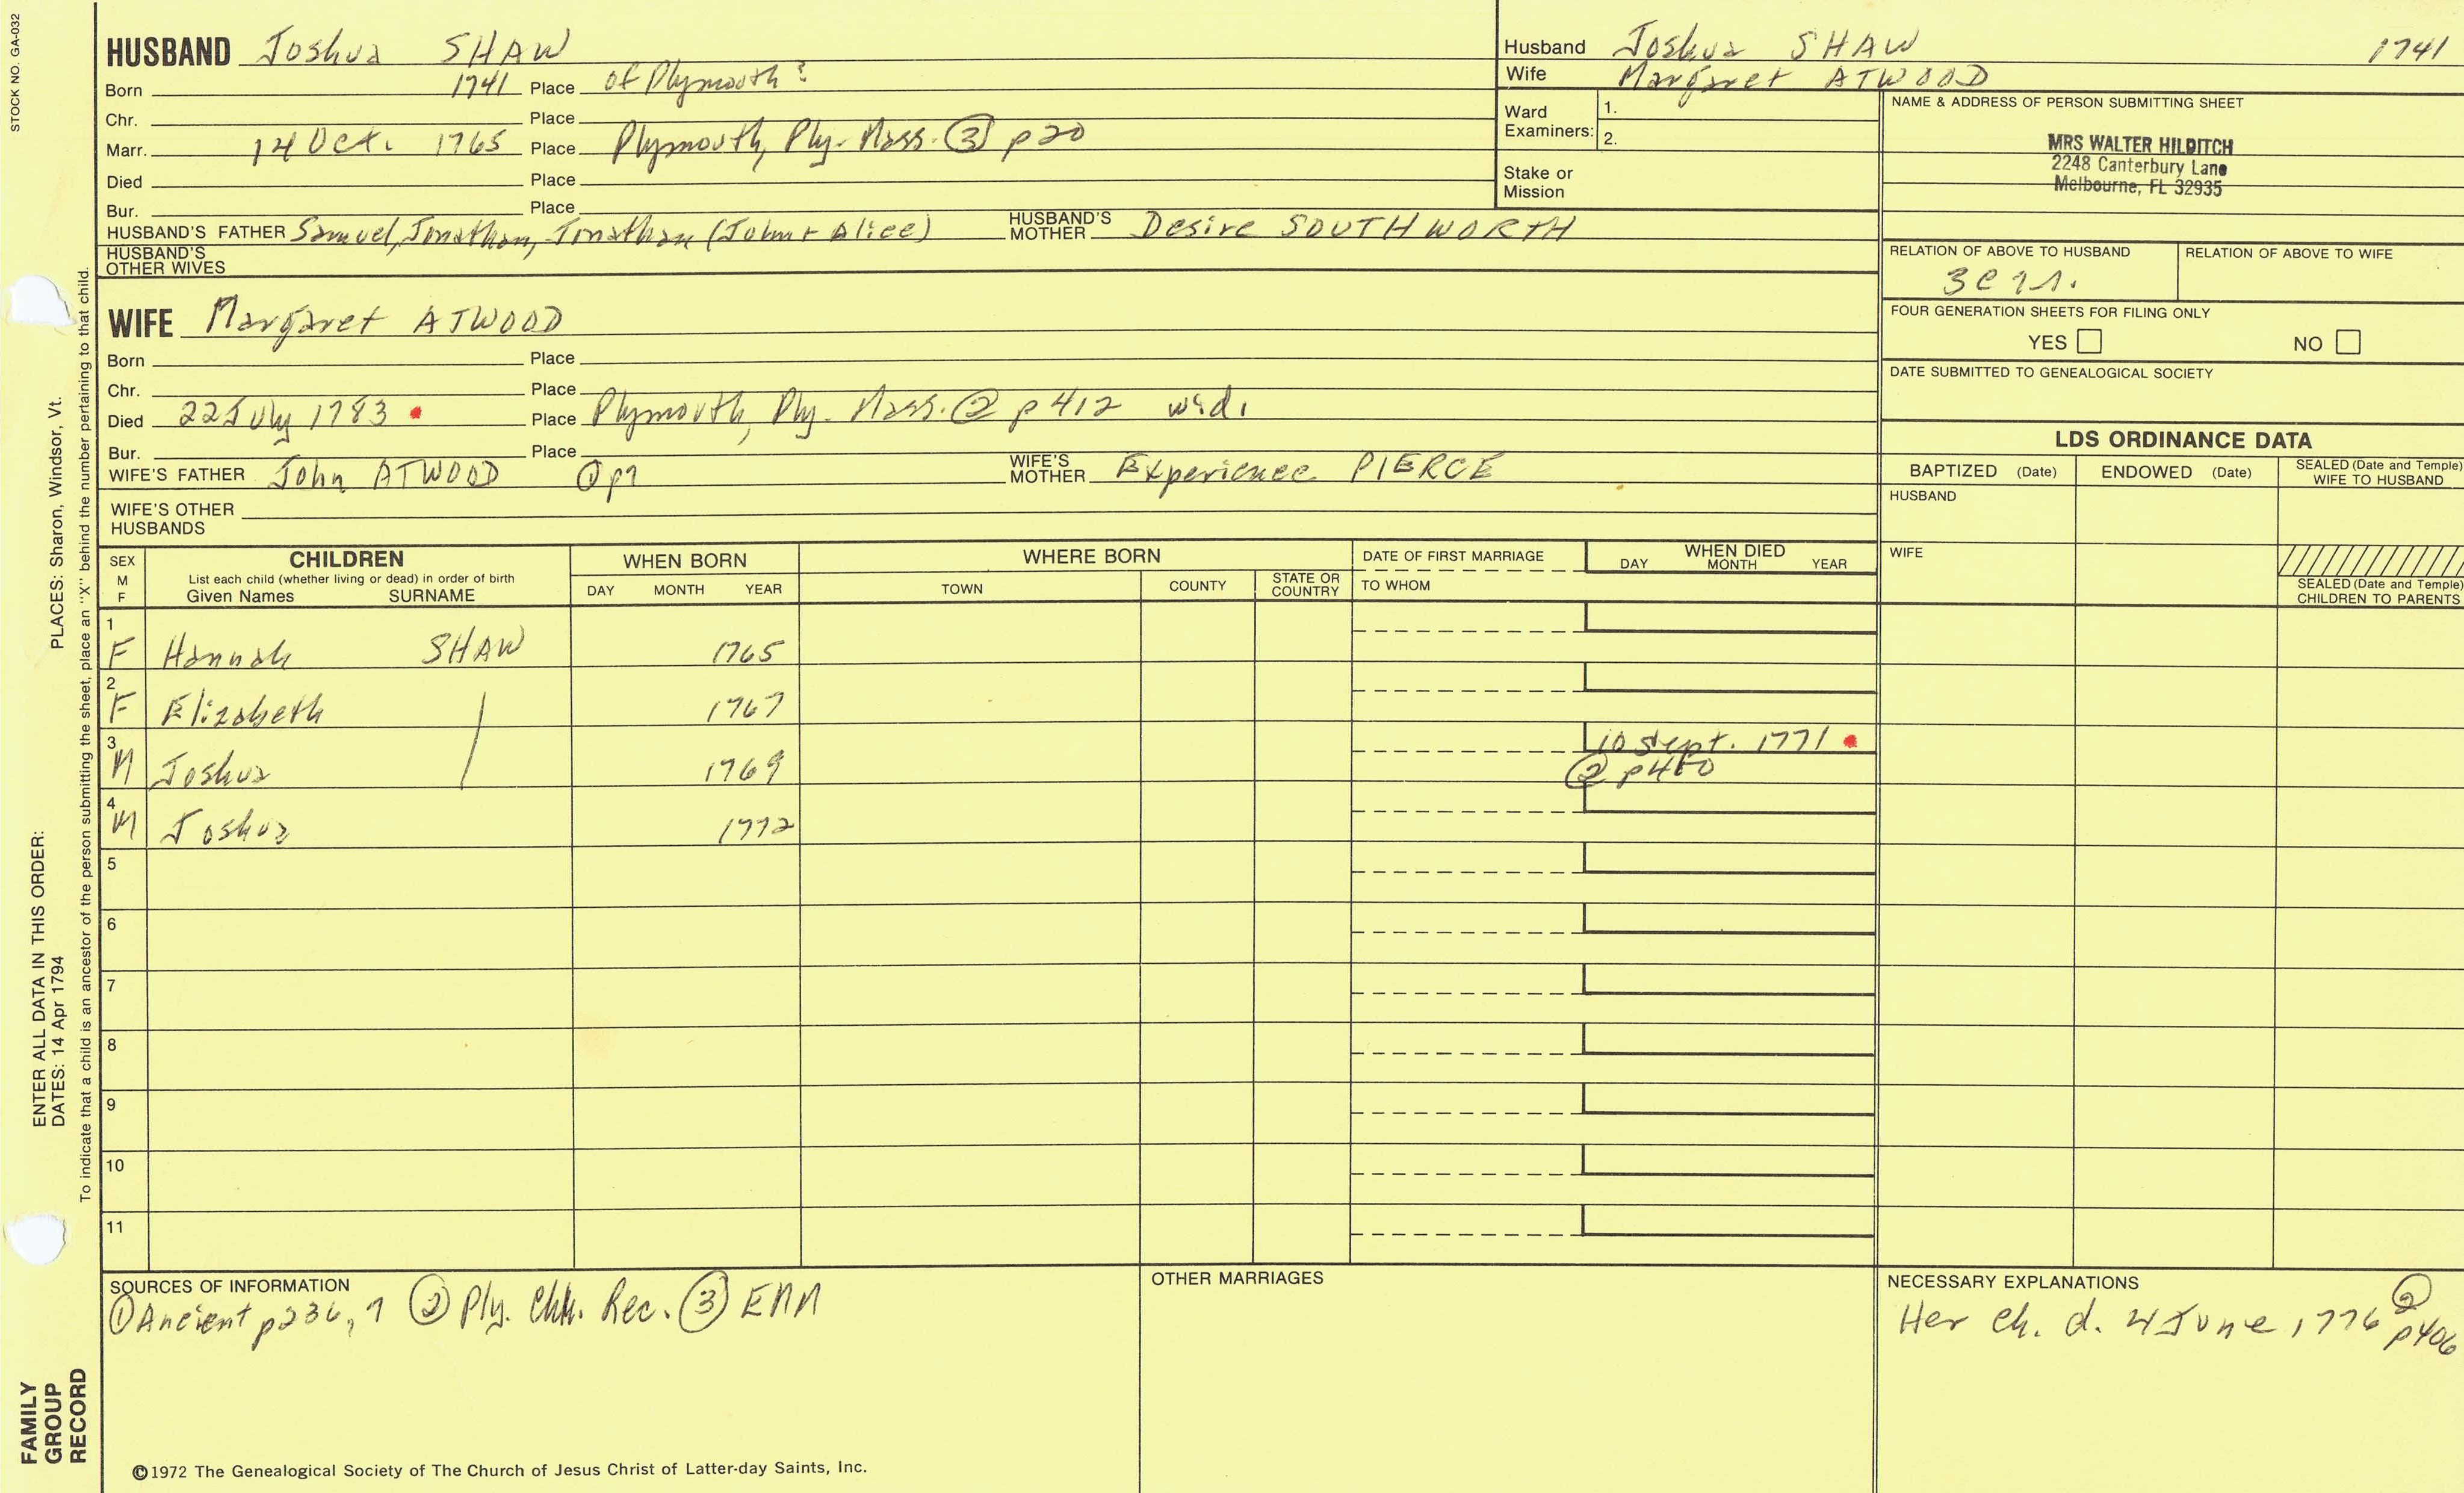 STOCK NO. GA-032
HUSBAND Joshua SHAW
Born 1741 Place of Plymouth?
Chr. Place
Marr. 14 Oct. 1765 Place Plymouth, Ply. Mass. ③ p20
Died Place
Bur. Place
HUSBAND'S FATHER Samuel, Jonathan, Jonathan (John + Alice) HUSBAND'S MOTHER Desire SOUTHWORTH
HUSBAND'S OTHER WIVES
WIFE Margaret ATWOOD
Born Place
Chr. Place
Died 22 July 1783 Place Plymouth, Ply. Mass. ② p412 wid.
Bur. Place
WIFE'S FATHER John ATWOOD ① p7 WIFE'S MOTHER Experience PIERCE
WIFE'S OTHER HUSBANDS
Husband Joshua SHAW 1741
Wife Margaret ATWOOD
Ward Examiners: 1.
2.
Stake or Mission
NAME & ADDRESS OF PERSON SUBMITTING SHEET
MRS WALTER HILDITCH
2248 Canterbury Lane
Melbourne, FL 32935
RELATION OF ABOVE TO HUSBAND RELATION OF ABOVE TO WIFE
FOUR GENERATION SHEETS FOR FILING ONLY
YES NO
DATE SUBMITTED TO GENEALOGICAL SOCIETY
LDS ORDINANCE DATA
BAPTIZED (Date) ENDOWED (Date) SEALED (Date and Temple) WIFE TO HUSBAND
HUSBAND
WIFE
SEALED (Date and Temple) CHILDREN TO PARENTS
SEX M F CHILDREN WHEN BORN WHERE BORN DATE OF FIRST MARRIAGE WHEN DIED
List each child (whether living or dead) in order of birth
Given Names SURNAME DAY MONTH YEAR TOWN COUNTY STATE OR COUNTRY TO WHOM DAY MONTH YEAR
1 F Hannah SHAW 1765
2 F Elizabeth 1767
3 M Joshua 1769 10 Sept. 1771
② p400
4 M Joshua 1772
5
6
7
8
9
10
11
SOURCES OF INFORMATION
① Ancient p236, 7 ② Ply. Chh. Rec. ③
OTHER MARRIAGES
NECESSARY EXPLANATIONS
Her ch. d. 4 June, 1776 ② p406
©1972 The Genealogical Society of The Church of Jesus Christ of Latter-day Saints, Inc.
ENTER ALL DATA IN THIS ORDER:
DATES: 14 Apr 1794 PLACES: Sharon, Windsor, Vt.
To indicate that a child is an ancestor of the person submitting the sheet, place an "X" behind the number pertaining to that child.
FAMILY
GROUP
RECORD